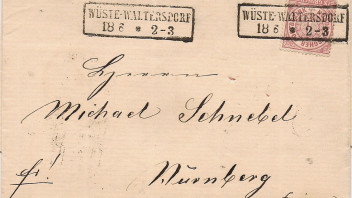 WÜSTE-WALTERSDORF
18 6 * 2-3
WÜSTE-WALTERSDORF
18 6 * 2-3
Herrn
Michael Schnebel
fr. Nürnberg